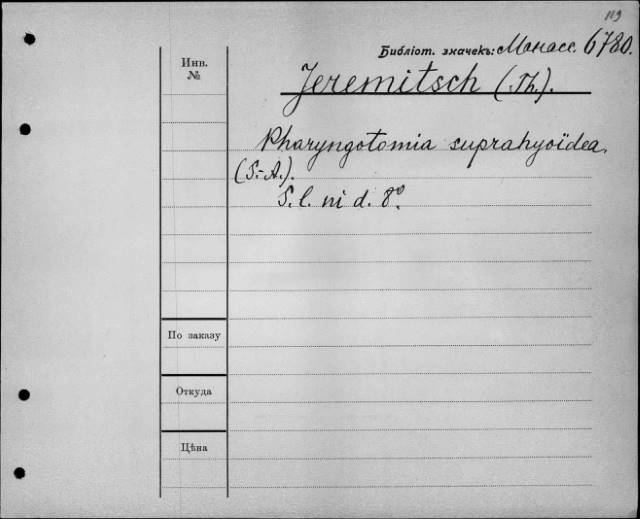 119
Библіот. значекъ: Манасс. 6780.
Инв.
№
Jeremitsch (Th.).
Pharyngotomia suprahyoïdea.
(S.-A.).
S. l. ni d. 8º.
По заказу
Откуда
Цѣна